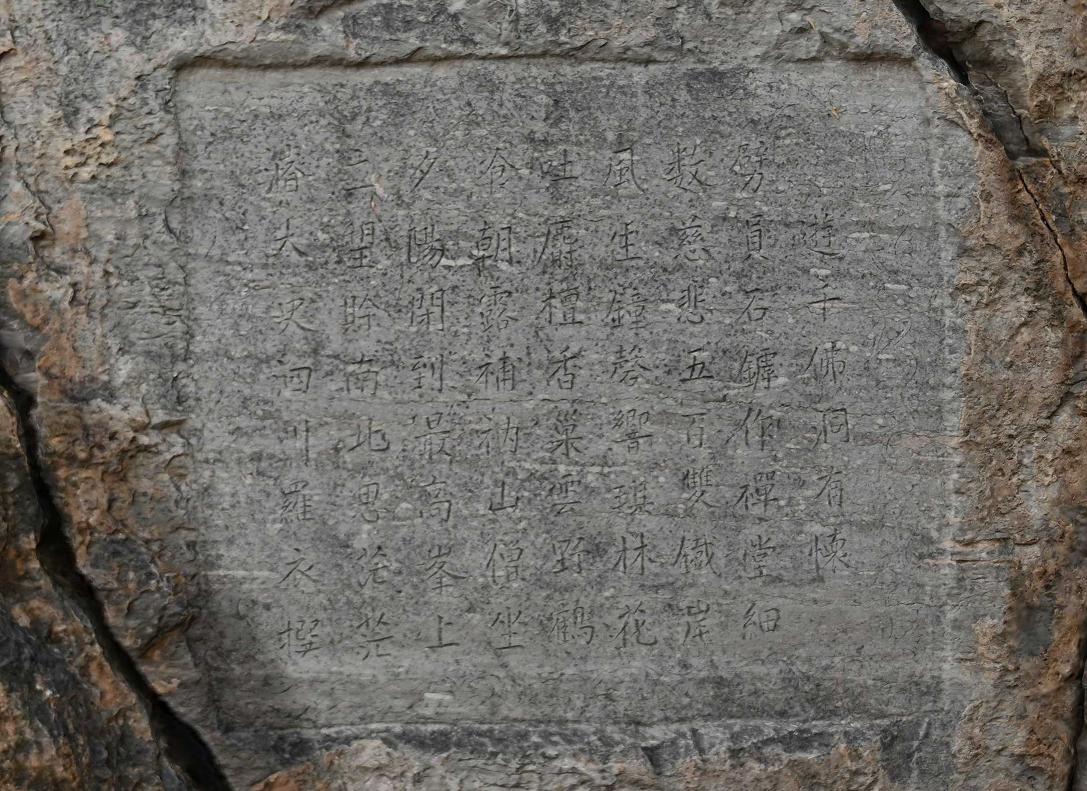 遊千佛洞有懷
劈員石鏬作禪堂細
數慈悲五百雙鐵崖
風生鐘磬響琪林花
吐麝檀香巢雲野鶴
令朝露補衲山僧坐
夕陽閑到最高峯上
望盱南北思茫茫
大吏泗川羅衣撰